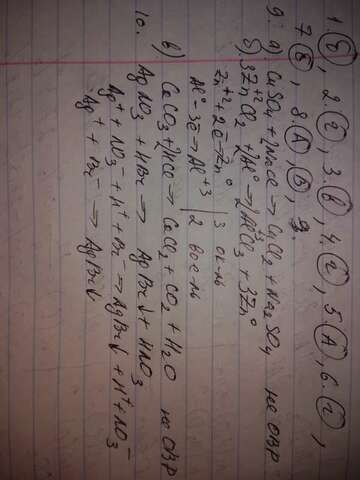 1. Б, 2. г, 3. в, 4. г, 5. А, 6. г,
7. Б, 8. А, В, 9.
9. а) CuSO4 + 2NaCl → CuCl2 + Na2SO4 не ОВР
б) 3Zn+2Cl2 + 2Al0 → 2Al+3Cl3 + 3Zn0
Zn+2 + 2ē → Zn0 | 3 ок-ль
Al0 - 3ē → Al+3 | 2 вос-ль
в) CaCO3 + 2HCl → CaCl2 + CO2 + H2O не ОВР
10. AgNO3 + HBr → AgBr↓ + HNO3
Ag+ + NO3- + H+ + Br- → AgBr↓ + H+ + NO3-
Ag+ + Br- → AgBr↓